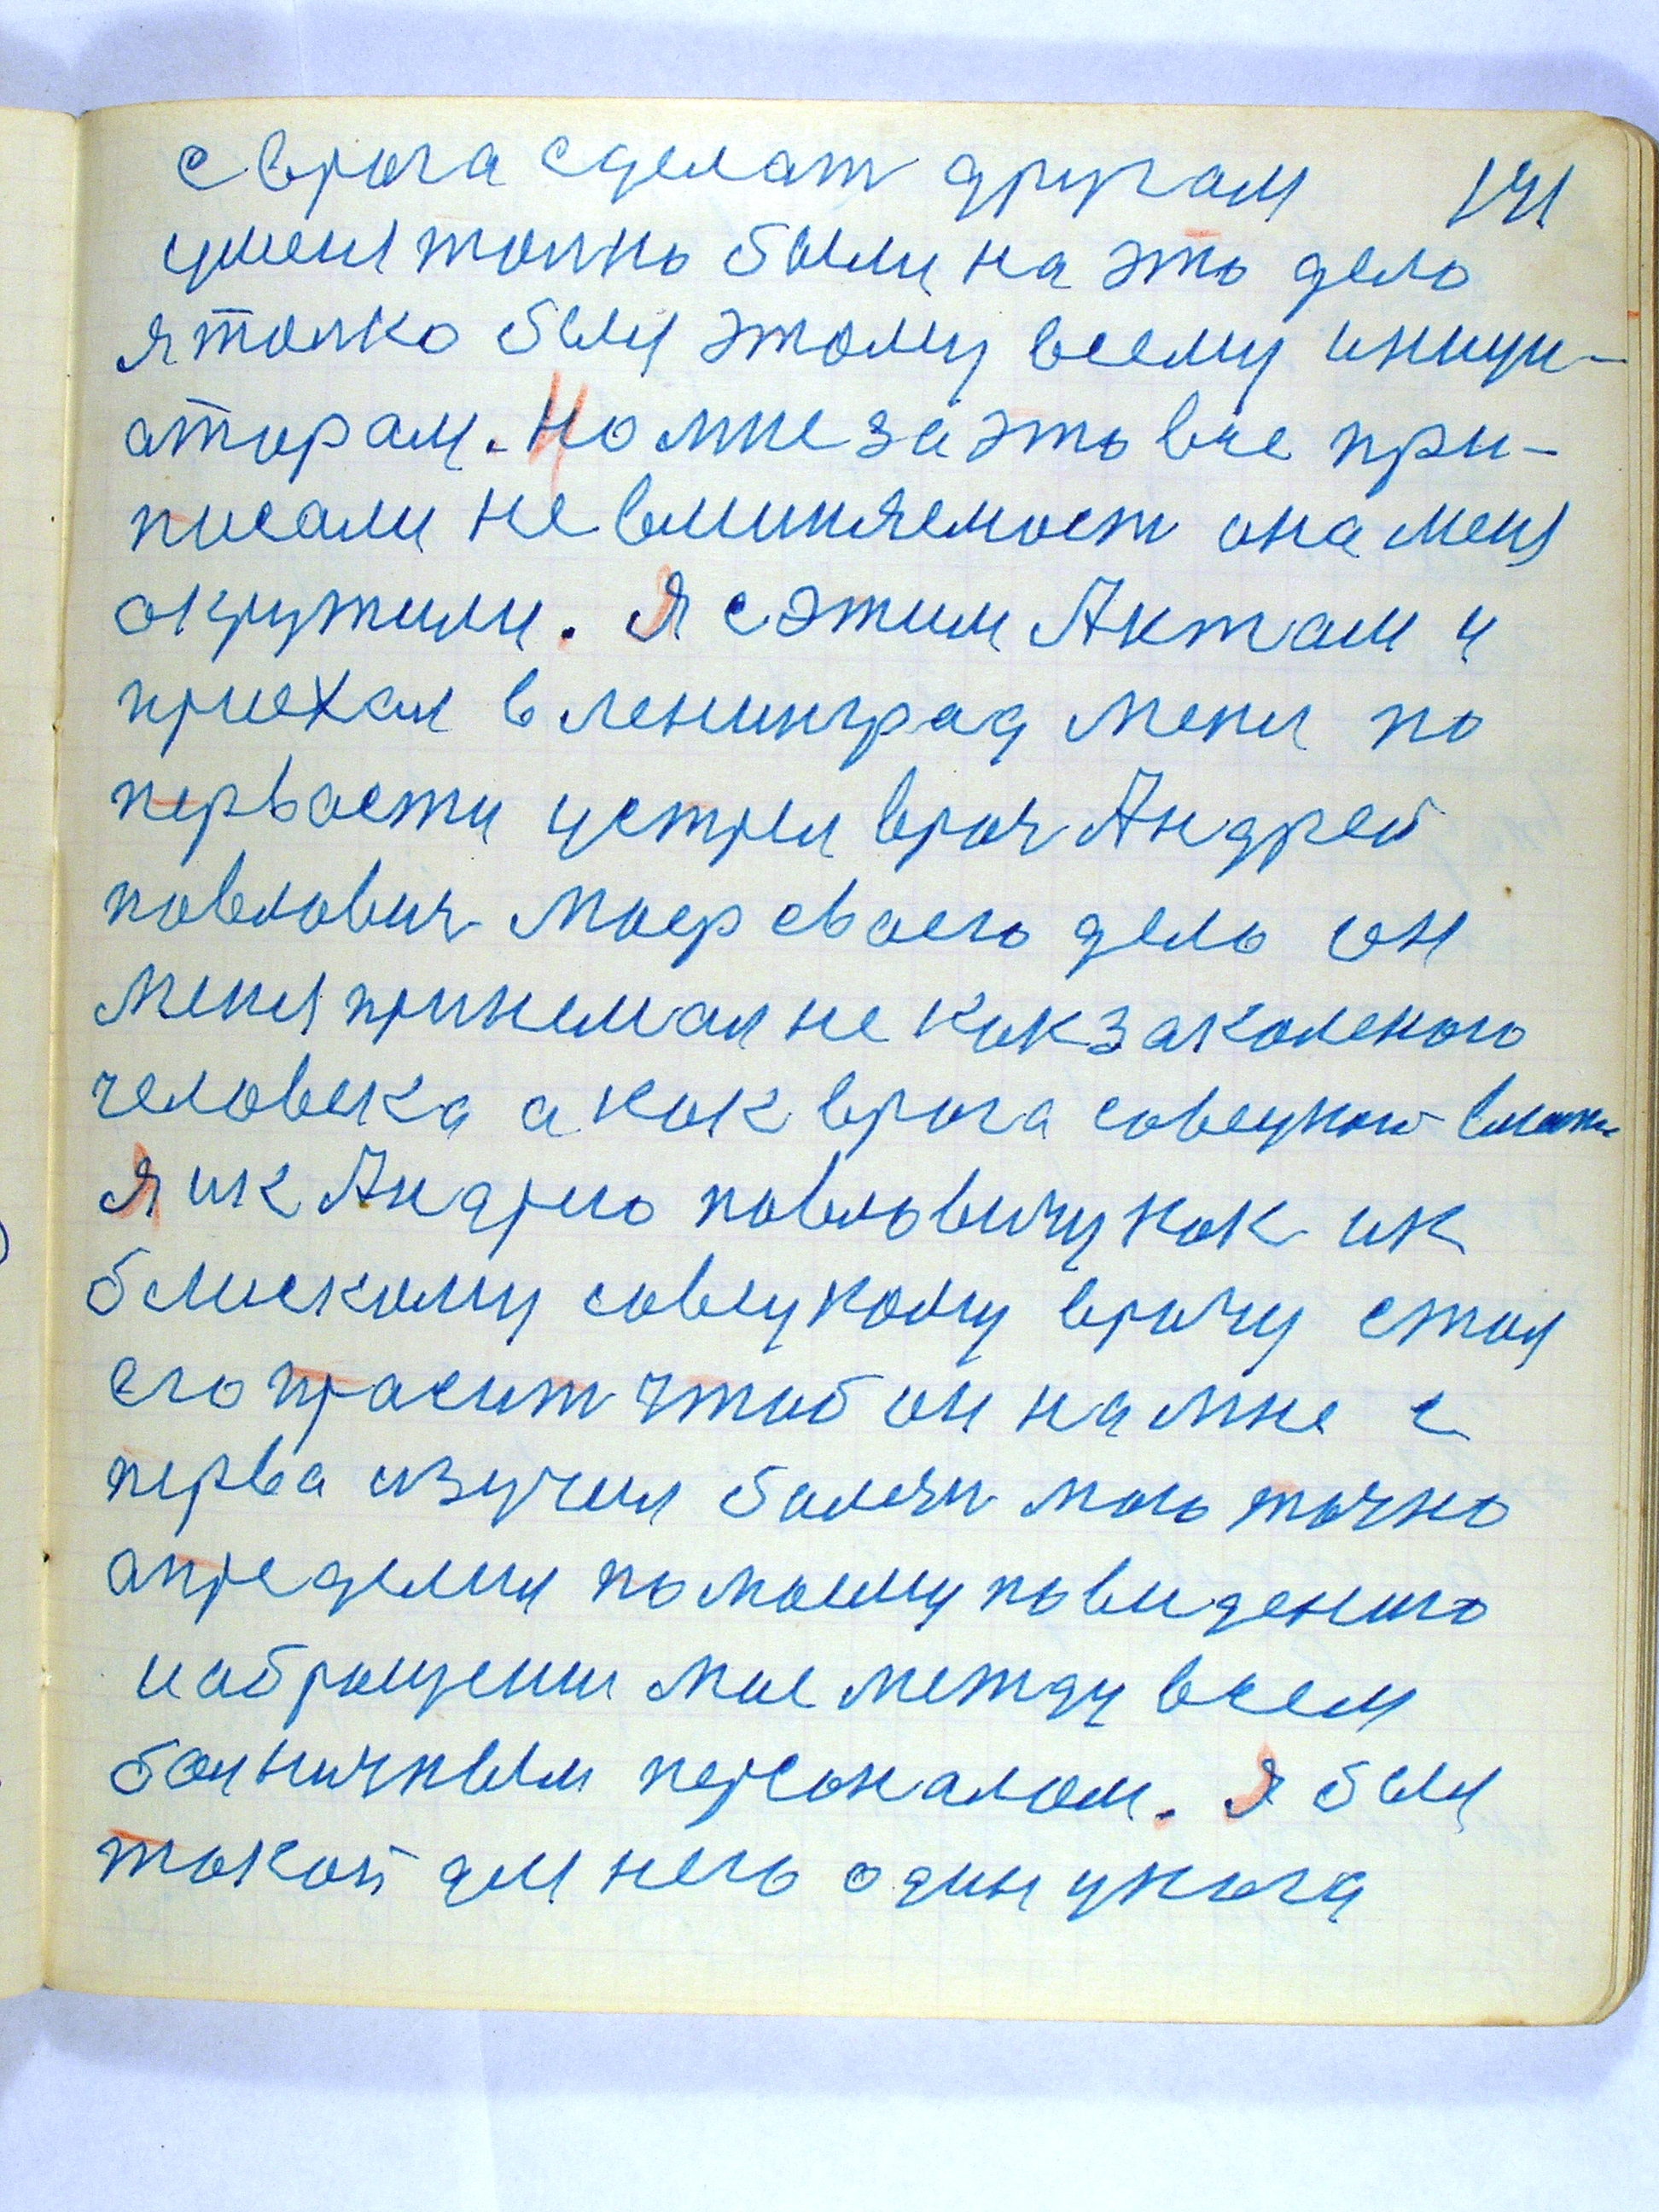 с врога сделат другам 141
уменя топно были на это дело
я толко был этому всему иници-
аторам. Но мне за это все при-
писали не вминяемост она меня
окружили. Я с этим Актам и
приехал в ленинград меня по
первасти устрел врач Андрей
повлович моер своего дело он
меня принемал не как закаленого
человека а как врога совецкой власти
я ик Андрею повловичу как ик
блискому совецкому врачу стал
его прасит чтоб он на мне с
перва изучил болезн мою точно
определил по моему повидению
и аброщении мое между всем
болничным персоналом. я был
токой для него один укога